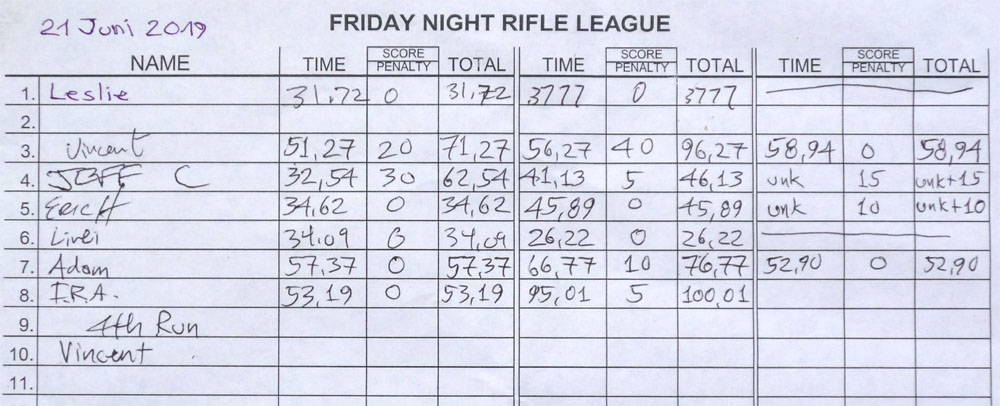 21 Juni 2019
FRIDAY NIGHT RIFLE LEAGUE
NAME TIME SCORE PENALTY TOTAL TIME SCORE PENALTY TOTAL TIME SCORE PENALTY TOTAL
1. Leslie 31,72 0 31,72 3777 0 3777
2.
3. Vincent 51,27 20 71,27 56,27 40 96,27 58,94 0 58,94
4. JEFF C 32,54 30 62,54 41,13 5 46,13 unk 15 unk+15
5. Eric H 34,62 0 34,62 45,89 0 45,89 unk 10 unk+10
6. 34.09 0 34,09 26,22 0 26,22
7. Adam 57,37 0 57,37 66,77 10 76,77 52,90 0 52,90
8. I.R.A. 53,19 0 53,19 95,01 5 100,01
9. 4th Run
10. Vincent
11.